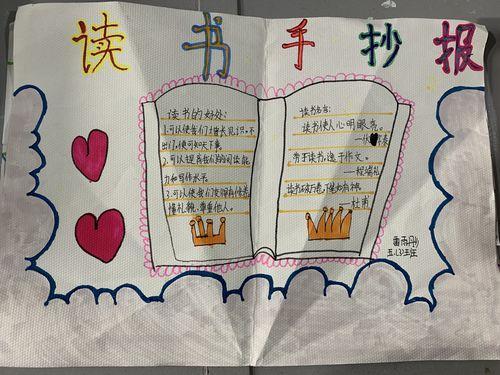 读书手抄报
读书的好处:
1.可以使我们增长见识。不
出门,便可知天下事。
2.可以提高我们的阅读能
力和写作水平。
3.可以使我们变得有修养,
懂礼貌,尊重他人。
读书名言:
读书使人心明眼亮。
勇于读书,逸于作文。
——程端礼
读书破万卷,下笔如有神。
——杜甫
五、(3)班